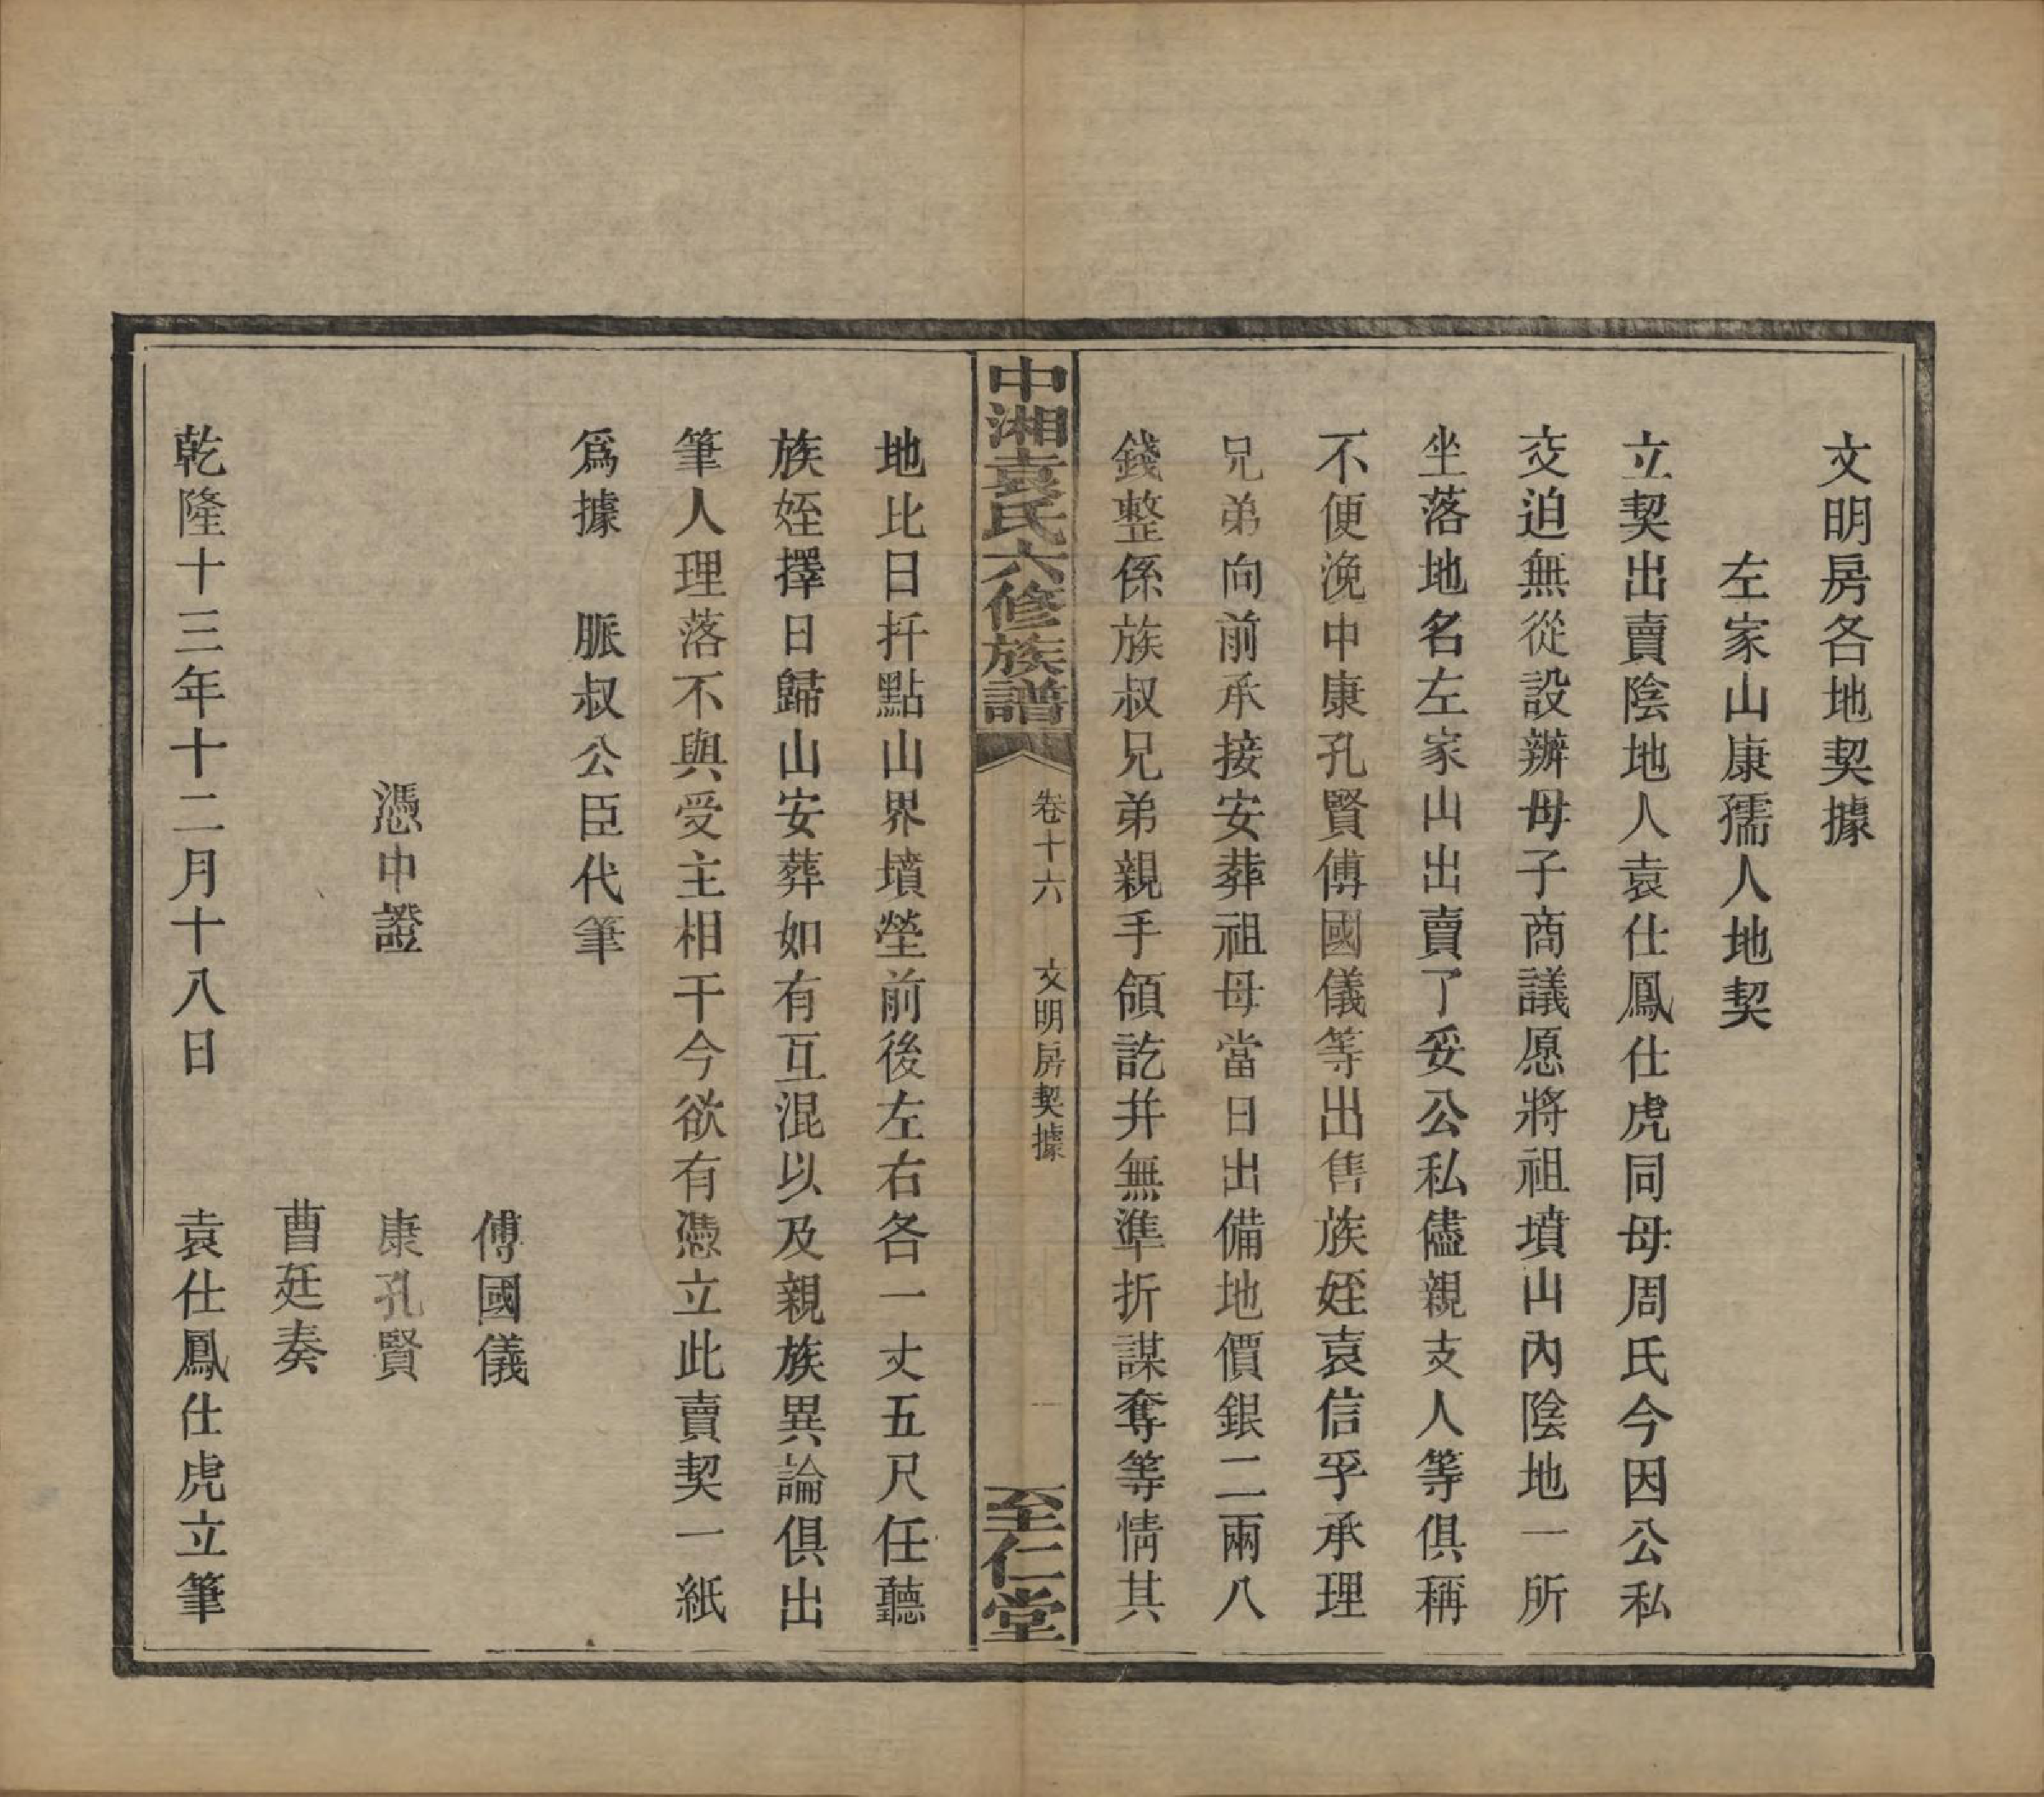 文明房各地契據
左家山康孺人地契
立契出賣陰地人袁仕鳳仕虎同母周氏今因公私
交迫無從設辦母子商議愿將祖墳山內陰地一所
坐落地名左家山出賣了妥公私儘親支人等俱稱
不便浼中康孔賢傅國儀等出售族姪袁信孚承理
兄弟向前承接安葬祖母當日出備地價銀二兩八
錢整係族叔兄弟親手領訖并無準折謀奪等情其
中湘袁氏六修族譜
卷十六 文明房契據 一
至仁堂
地比日扦點山界墳塋前後左右各一丈五尺任聽
族姪擇日歸山安葬如有互混以及親族異論俱出
筆人理落不與受主相干今欲有憑立此賣契一紙
爲據 脈叔公臣代筆
傅國儀
憑中證 康孔賢
曹廷奏
乾隆十三年十二月十八日 袁仕鳳仕虎立筆